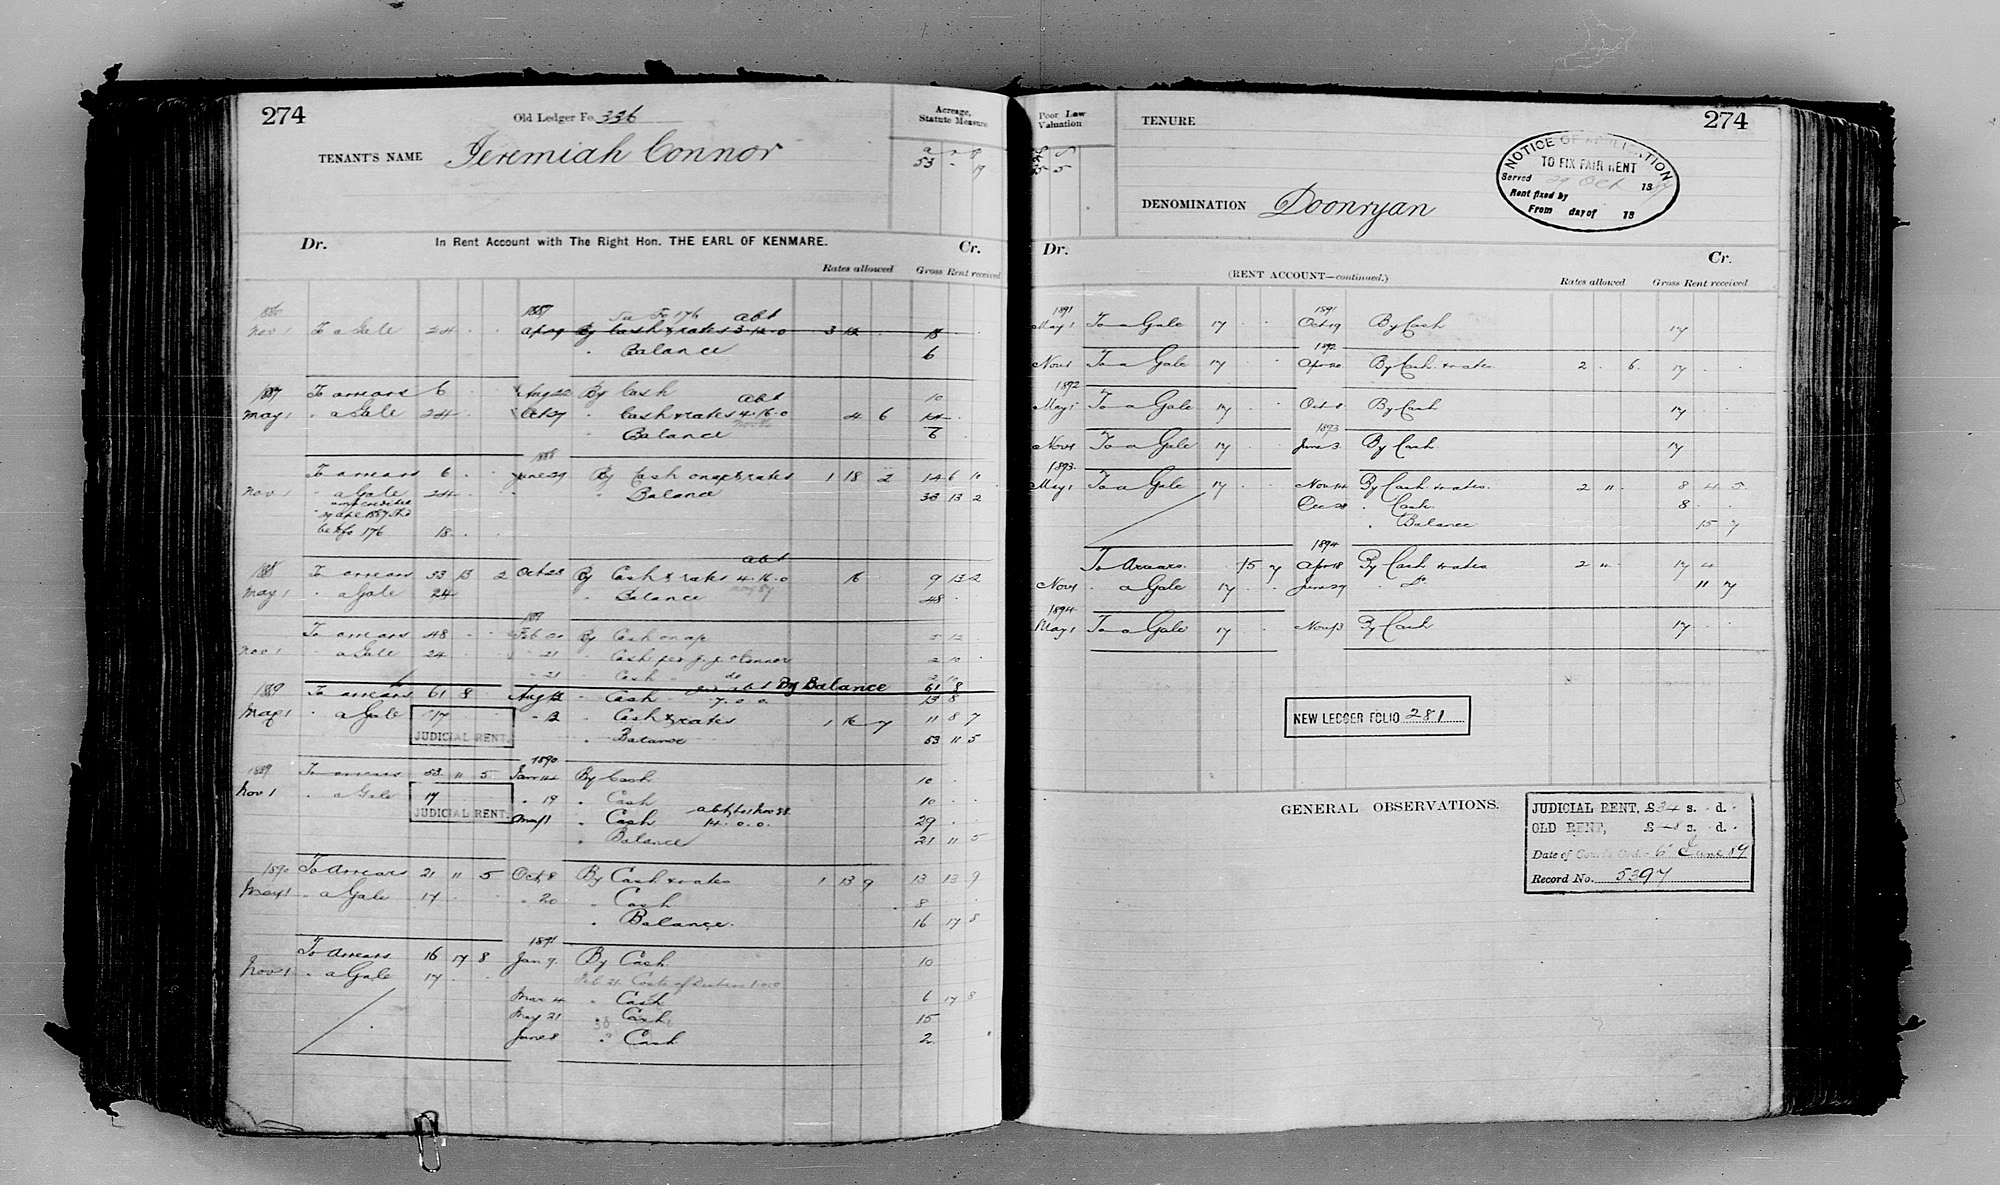 274
Old Ledger Fo. 336
Acreage, Statute Measure
TENANT'S NAME Jeremiah Connor
a r p
53 - 19
Dr. In Rent Account with The Right Hon. THE EARL OF KENMARE. Cr.
Rates allowed Gross Rent received
1886 1887 To Fo 176 abt
Nov 1 To a Gale 24 Apr 29 By Cash & rates 3-12-0 3 12 18
" Balance 6
1887 To arrears 6 Aug 22 By Cash abt 10
May 1 " a Gale 24 Oct 27 " Cash & rates 4.16.0 4 6 14
" Balance 6
1888
To arrears 6 June 29 By Cash on ap & rates 1 18 2 14 6 10
Nov 1 " a Gale 24 " Balance 33 13 2
176 18
1888 To arrears 33 13 2 Oct 23 By Cash & rates 4.16.0 abt 16 9 13 2
May 1 " a Gale 24 " Balance 48
To arrears 48 Feb By Cash on ap 5 12
Nov 1 " a Gale 24 " 21 " Cash per J. J. O'Connor 2 10
" 21 " Cash " do
By Balance 61 8
1889 To arrears 61 8 Aug 12 " Cash 7.0.0 13 8
May 1 " a Gale 17 " 12 " Cash & rates 1 16 7 11 8 7
JUDICIAL RENT. " Balance 53 11 5
1890
1889 To arrears 53 11 5 Jan 14 By Cash 10
Nov 1 " a Gale 17 " 19 " Cash 10
JUDICIAL RENT. May 1 " Cash 14.0.0. 29
" Balance 21 11 5
1890 To Arrears 21 11 5 Oct 8 By Cash & rates 1 13 9 13 13 9
May 1 " a Gale 17 " 20 " Cash 8
" Balance. 16 17 8
1891
To Arrears 16 17 8 Jan 7. By Cash 10
Nov 1 " a Gale 17 Feb 21 Costs of
Mar 4 " Cash 6 17 8
May 21 " Cash 15
June 8 " Cash 2
Poor Law Valuation
TENURE
274
NOTICE OF APPLICATION
TO FIX FAIR RENT
Served 29 Oct 1887
Rent fixed by
From day of 18
DENOMINATION Doonryan
Dr. Cr.
(RENT ACCOUNT—continued.)
Rates allowed Gross Rent received
1891 1891
May 1 To a Gale 17 Oct 19 By Cash 17
1892
Nov 1 To a Gale 17 Apr 20 By Cash & rates 2 . 6 17
1892
May 1 To a Gale 17 Oct 8 By Cash 17
1893
Nov 1 To a Gale 17 June 3 By Cash 17
1893
May 1 To a Gale 17 Nov 14 By Cash & rates 2 " 8 4 5
Dec 28 " Cash. 8
" Balance 15 7
1894
To Arrears 15 7 Apr 18 By Cash & rates 2 " 17 4
Nov 1 " a Gale 17 June 27 " Do. 11 7
1894
May 1 To a Gale 17 Nov 13 By Cash 17
NEW LEDGER FOLIO 281
GENERAL OBSERVATIONS.
JUDICIAL RENT, £34 s. d.
OLD RENT, £48 s. d.
Date of Court's Order 6 June 89
Record No. 5397